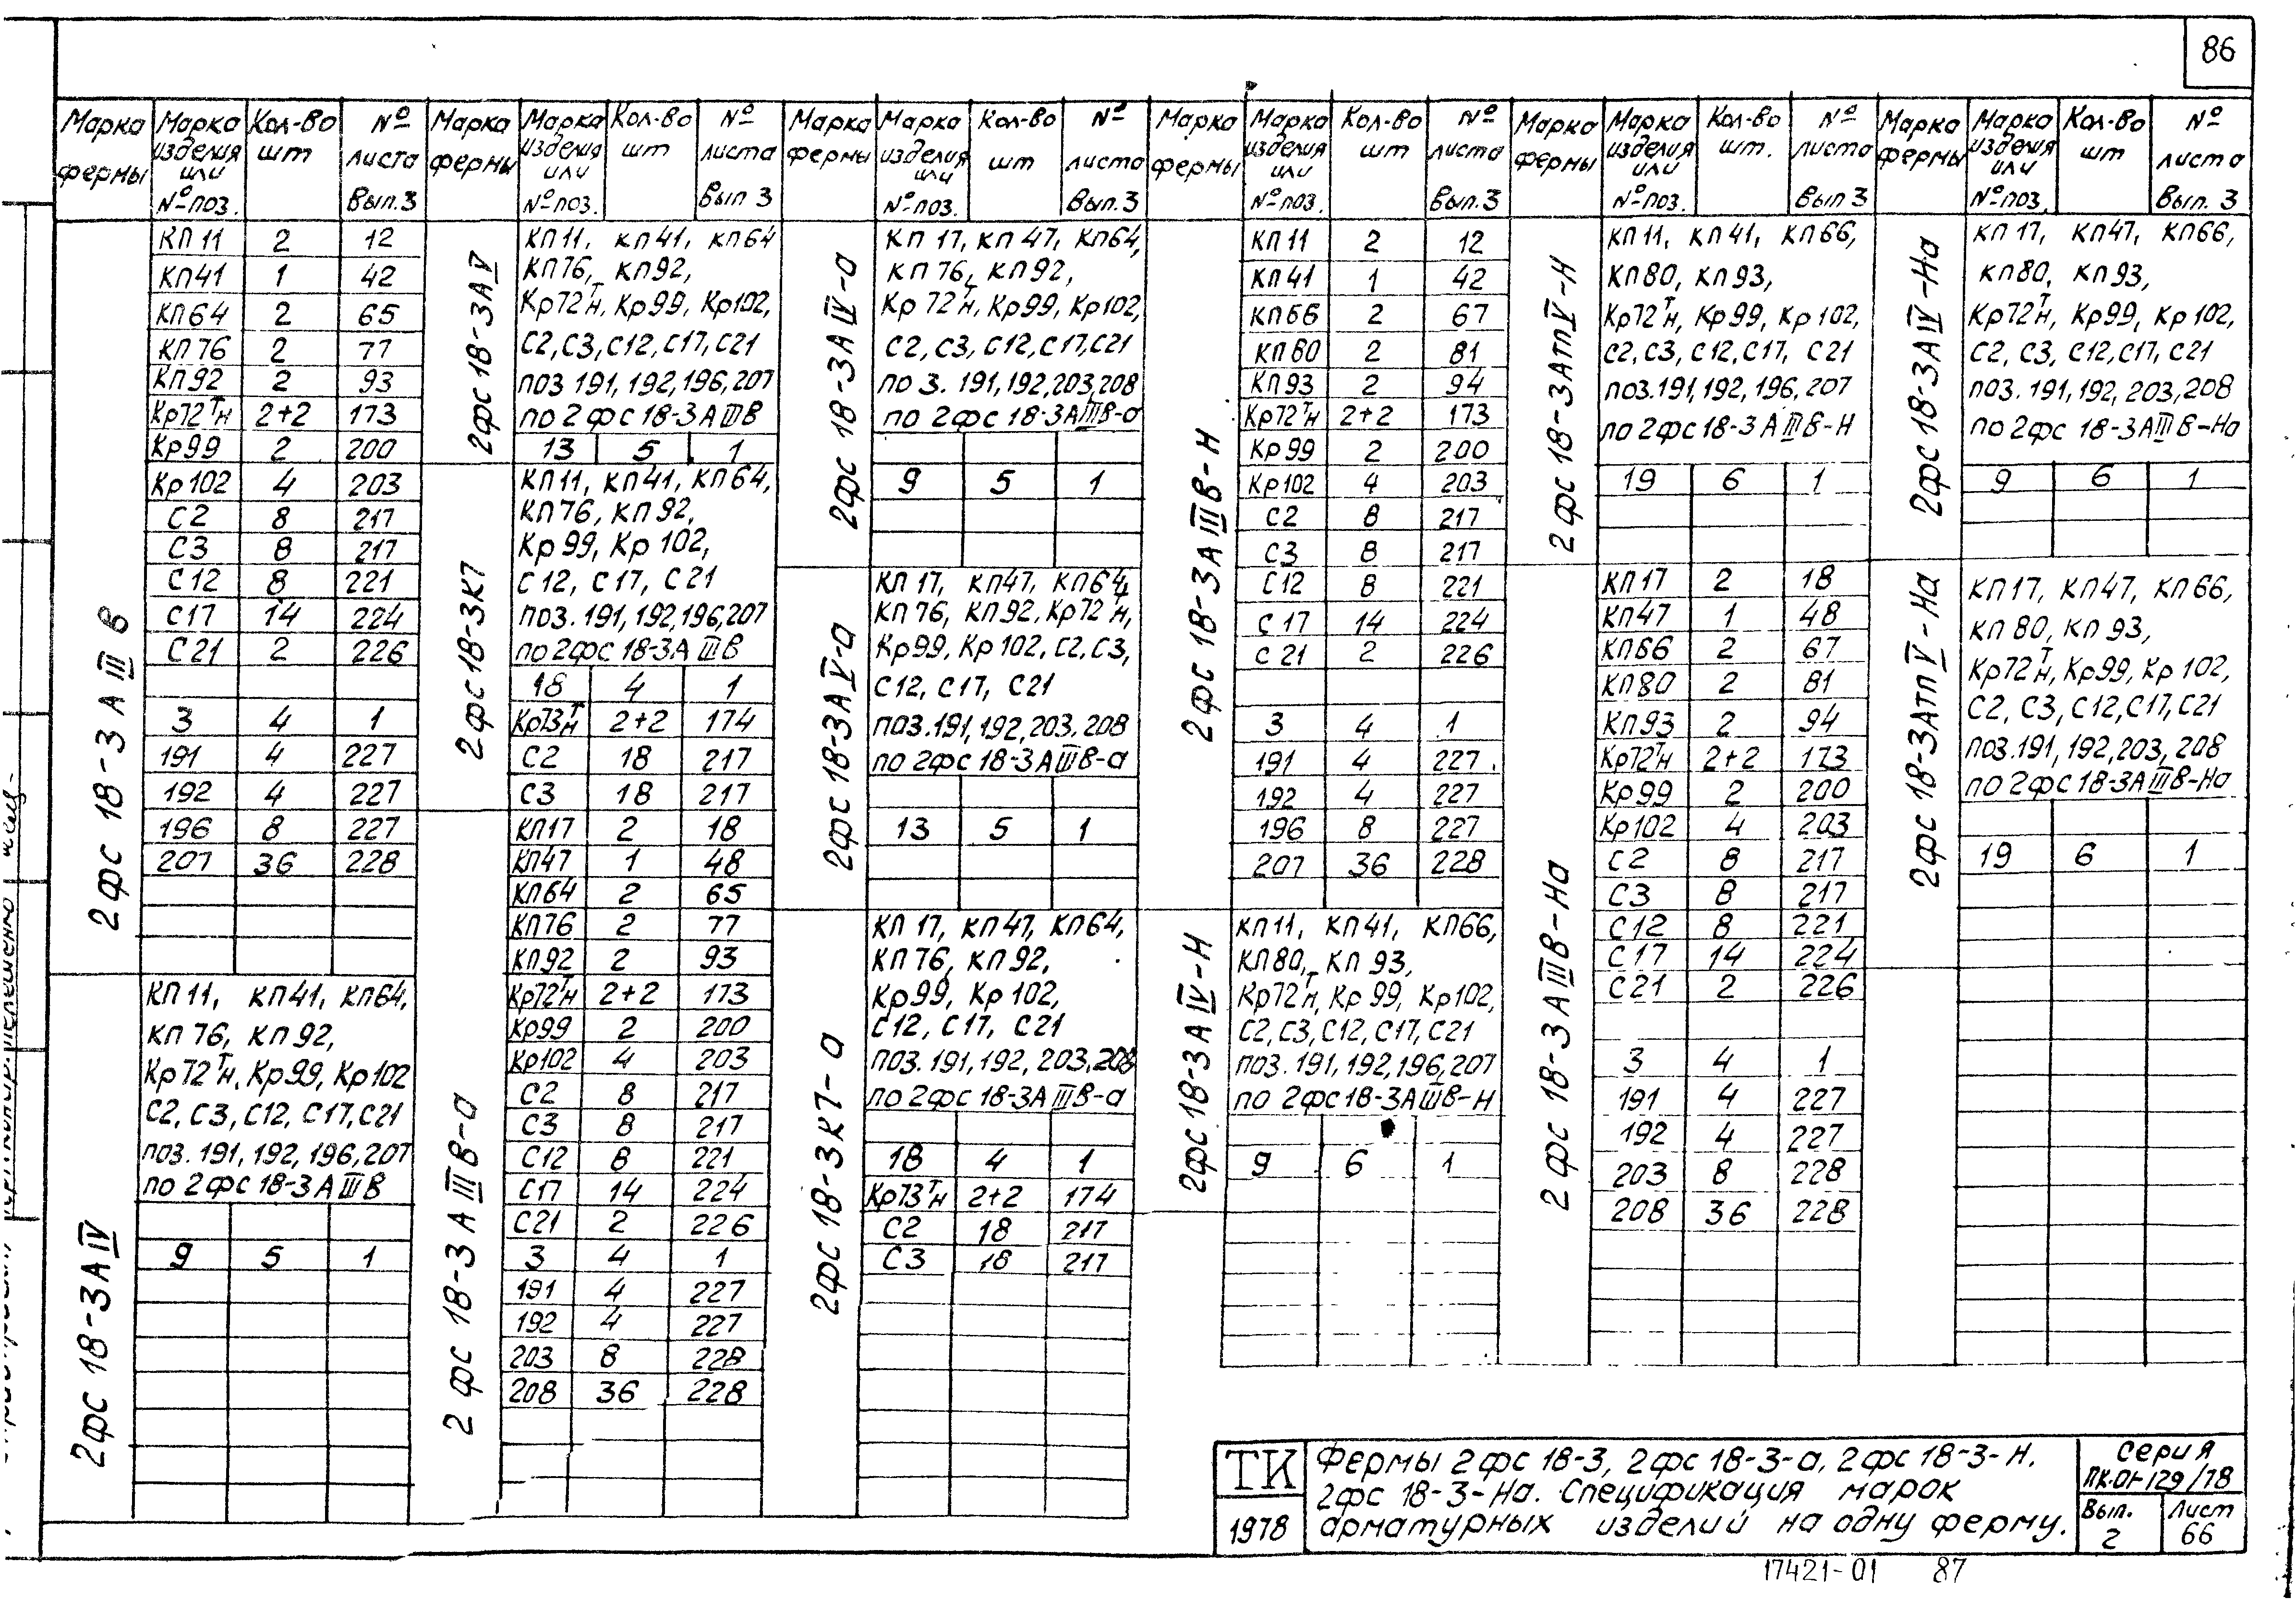 86
Марка фермы | Марка изделия или № поз. | Кол-во шт | № листа Вып. 3
2фс 18-3АIIIВ
КП11 2 12
КП41 1 42
КП64 2 65
КП76 2 77
КП92 2 93
Кр72тн 2+2 173
Кр99 2 200
Кр102 4 203
С2 8 217
С3 8 217
С12 8 221
С17 14 224
С21 2 226
3 4 1
191 4 227
192 4 227
196 8 227
207 36 228
2фс 18-3АIV
КП11, КП41, КП64,
КП76, КП92,
Кр72тн, Кр99, Кр102
С2, С3, С12, С17, С21
поз. 191, 192, 196, 207
по 2фс 18-3АIIIВ
9 5 1
Марка фермы | Марка изделия или № поз. | Кол-во шт | № листа Вып 3
2фс 18-3АV
КП11, КП41, КП64
КП76, КП92,
Кр72тн, Кр99, Кр102,
С2, С3, С12, С17, С21
поз 191, 192, 196, 207
по 2фс 18-3АIIIВ
13 5 1
2фс 18-3К7
КП11, КП41, КП64,
КП76, КП92,
Кр99, Кр102,
С12, С17, С21
поз. 191, 192, 196, 207
по 2фс 18-3АIIIВ
18 4 1
Кр73тн 2+2 174
С2 18 217
С3 18 217
2фс 18-3АIIIВ-а
КП17 2 18
КП47 1 48
КП64 2 65
КП76 2 77
КП92 2 93
Кр72тн 2+2 173
Кр99 2 200
Кр102 4 203
С2 8 217
С3 8 217
С12 8 221
С17 14 224
С21 2 226
3 4 1
191 4 227
192 4 227
203 8 228
208 36 228
Марка фермы | Марка изделия или № поз. | Кол-во шт | № листа Вып. 3
2фс 18-3АIV-а
КП17, КП47, КП64,
КП76, КП92,
Кр72тн, Кр99, Кр102,
С2, С3, С12, С17, С21
поз. 191, 192, 203, 208
по 2фс 18-3АIIIВ-а
9 5 1
2фс 18-3АV-а
КП17, КП47, КП64,
КП76, КП92, Кр72тн,
Кр99, Кр102, С2, С3,
С12, С17, С21
поз. 191, 192, 203, 208
по 2фс 18-3АIIIВ-а
13 5 1
2фс 18-3К7-а
КП17, КП47, КП64,
КП76, КП92,
Кр99, Кр102,
С12, С17, С21
поз. 191, 192, 203, 208
по 2фс 18-3АIIIВ-а
18 4 1
Кр73тн 2+2 174
С2 18 217
С3 18 217
Марка фермы | Марка изделия или № поз. | Кол-во шт | № листа Вып. 3
2фс 18-3АIIIВ-Н
КП11 2 12
КП41 1 42
КП66 2 67
КП80 2 81
КП93 2 94
Кр72тн 2+2 173
Кр99 2 200
Кр102 4 203
С2 8 217
С3 8 217
С12 8 221
С17 14 224
С21 2 226
3 4 1
191 4 227
192 4 227
196 8 227
207 36 228
2фс 18-3АIV-Н
КП11, КП41, КП66,
КП80, КП93,
Кр72тн, Кр99, Кр102,
С2, С3, С12, С17, С21
поз. 191, 192, 196, 207
по 2фс 18-3АIIIВ-Н
9 6 1
Марка фермы | Марка изделия или № поз. | Кол-во шт. | № листа Вып 3
2фс 18-3АтпV-Н
КП11, КП41, КП66,
КП80, КП93,
Кр72тн, Кр99, Кр102,
С2, С3, С12, С17, С21
поз. 191, 192, 196, 207
по 2фс 18-3АIIIВ-Н
19 6 1
2фс 18-3АIIIВ-На
КП17 2 18
КП47 1 48
КП66 2 67
КП80 2 81
КП93 2 94
Кр72тн 2+2 173
Кр99 2 200
Кр102 4 203
С2 8 217
С3 8 217
С12 8 221
С17 14 224
С21 2 226
3 4 1
191 4 227
192 4 227
203 8 228
208 36 228
Марка фермы | Марка изделия или № поз. | Кол-во шт | № листа Вып. 3
2фс 18-3АIV-На
КП17, КП47, КП66,
КП80, КП93,
Кр72тн, Кр99, Кр102,
С2, С3, С12, С17, С21
поз. 191, 192, 203, 208
по 2фс 18-3АIIIВ-На
9 6 1
2фс 18-3АтпV-На
КП17, КП47, КП66,
КП80, КП93,
Кр72тн, Кр99, Кр102,
С2, С3, С12, С17, С21
поз. 191, 192, 203, 208
по 2фс 18-3АIIIВ-На
19 6 1
ТК
1978
Фермы 2фс 18-3, 2фс 18-3-а, 2фс 18-3-Н.
2фс 18-3-На. Спецификация марок
арматурных изделий на одну ферму.
Серия
ПК-01-129/78
Вып. 2
Лист 66
17421-01 87